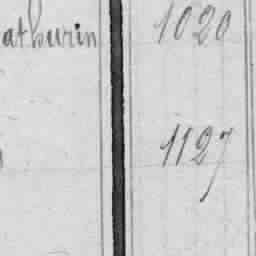 athurin 1020
1127